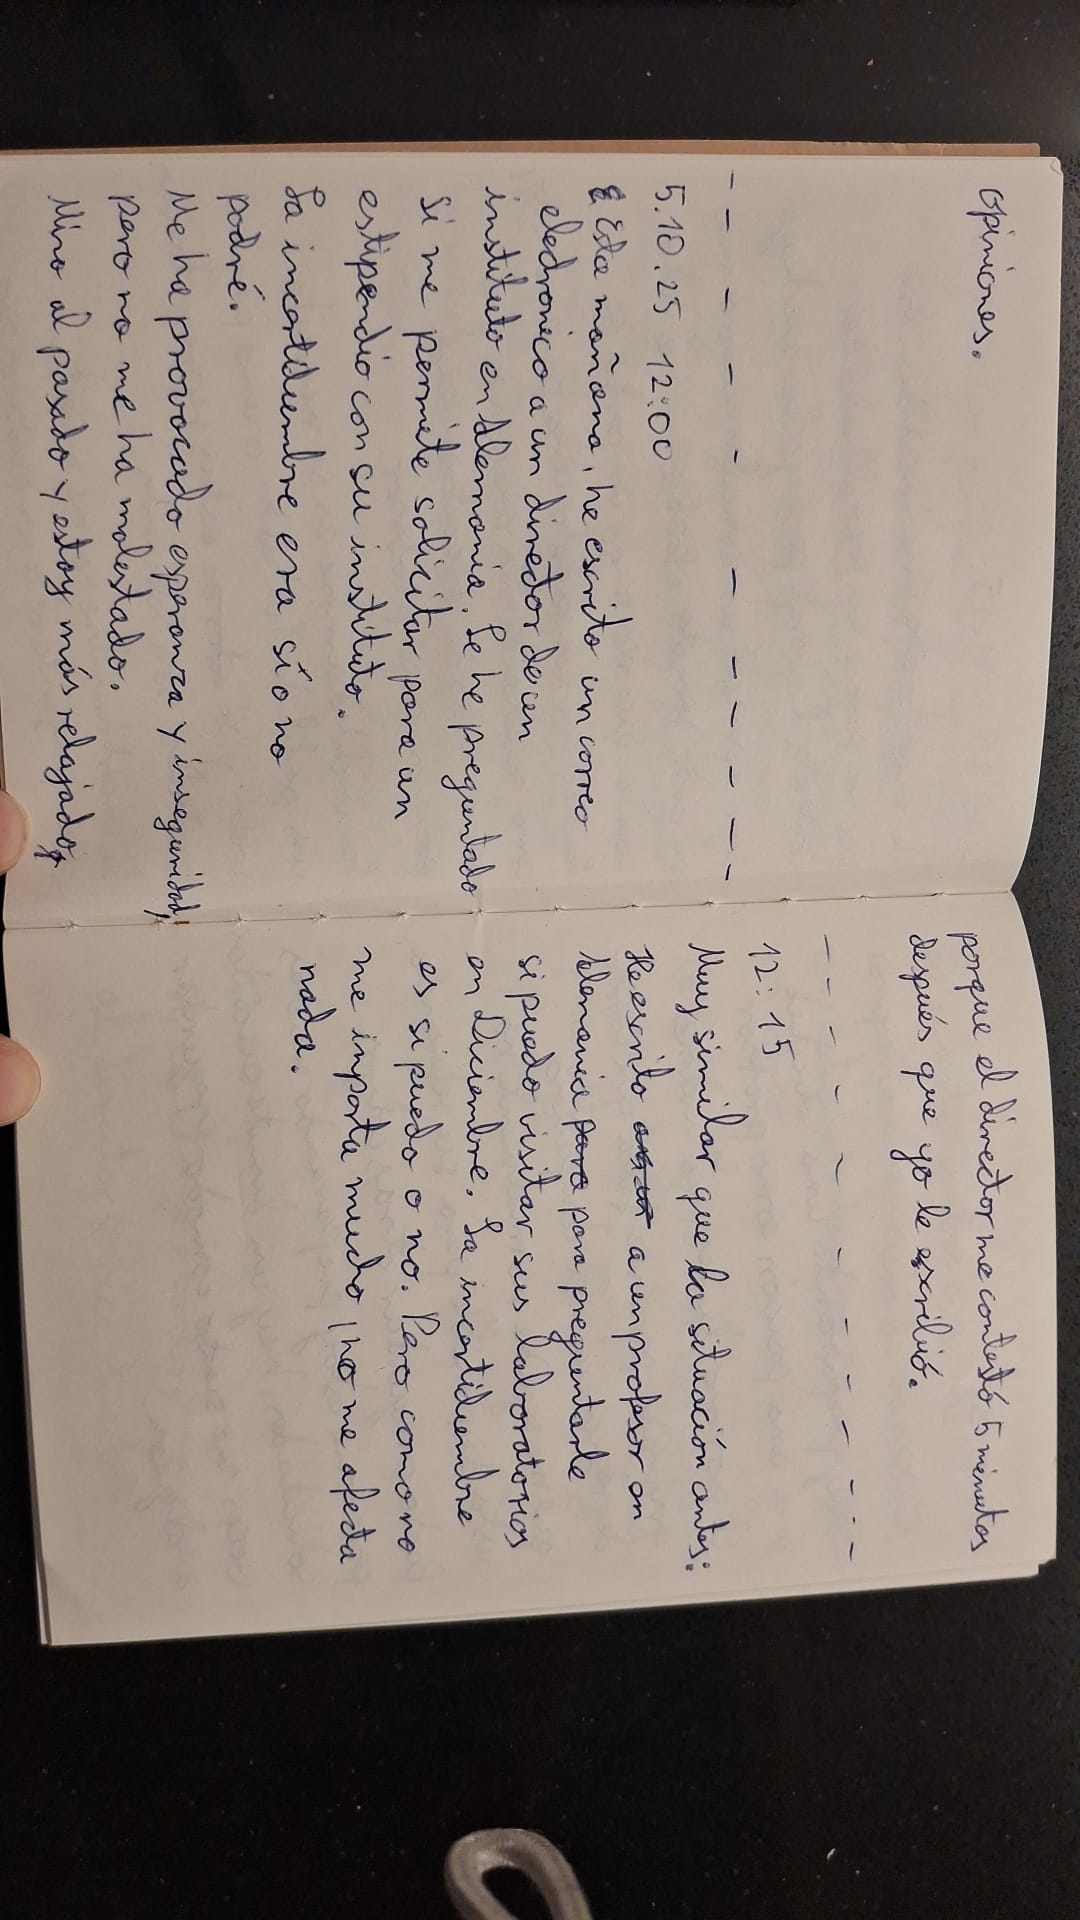 opiniones.
- - - - - - - - - -
5.10.25 12:00
Esta mañana, he escrito un correo
eledronico a un diredor de un
instituto en Alemania. Le he preguntado
si me permite solicitar para un
estipendio con su instituto.
La incertidumbre era sí o no
podré.
Me ha provocado esperanza y inseguridad,
pero no me ha molestado.
Miro al pasado y estoy más relajado,
porque el diredor me contestó 5 minutos
después que yo le escribió.
- - - - - - - - - -
12:15
Muy similar que la situación antes:
He escrito a un profesor en
Alemania para para preguntarle
si puedo visitar sus laboratorios
en Diciembre. La incertidumbre
es si puedo o no. Pero como no
me importa mucho, no me afecta
nada.